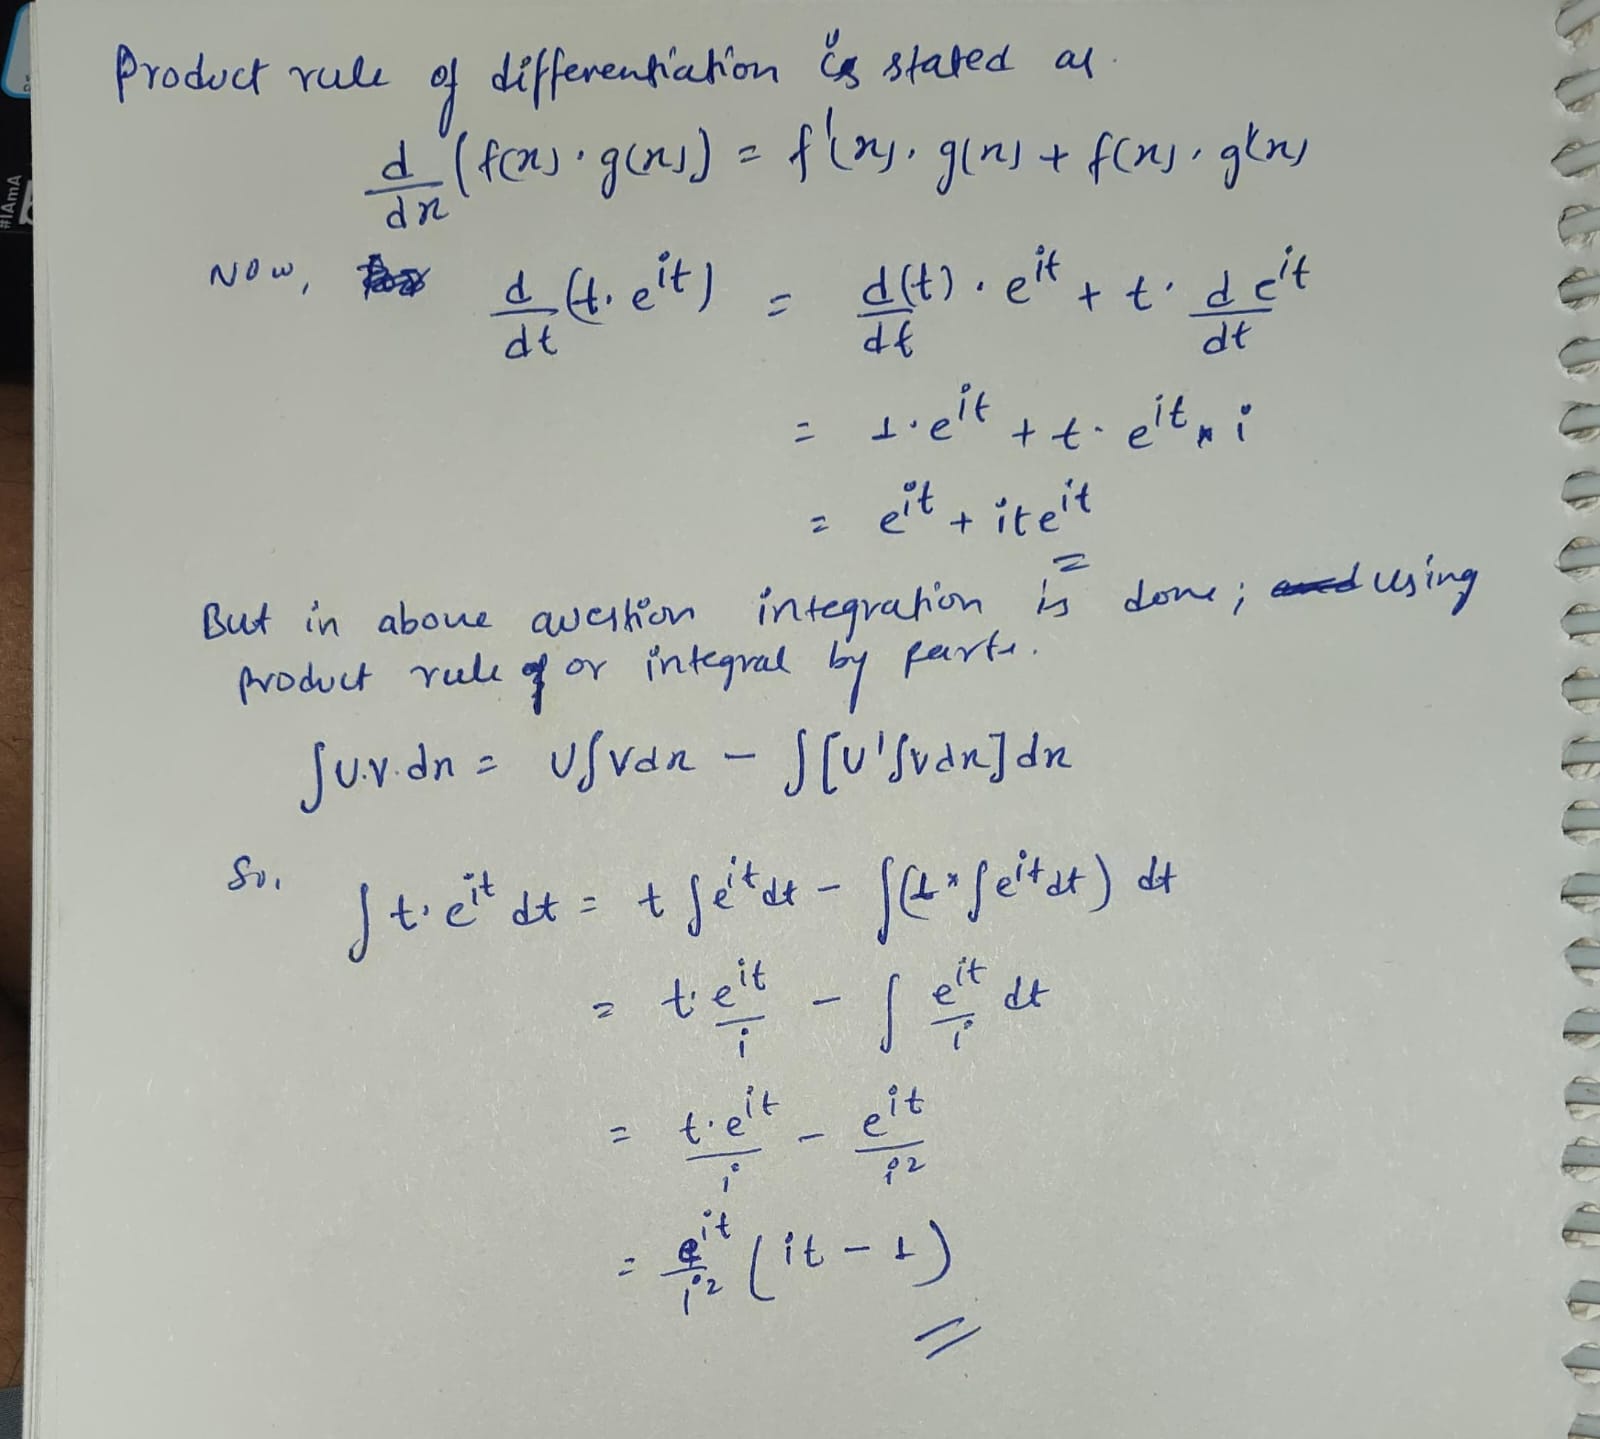 Product rule of differentiation is stated as
d/dx (f(x) · g(x)) = f'(x) · g(x) + f(x) · g'(x)
Now, d/dt (t · e^{it}) = d(t)/dt · e^{it} + t · d e^{it}/dt
= 1 · e^{it} + t · e^{it} * i
= e^{it} + i t e^{it}
But in above question integration is done; using
product rule or integral by parts.
∫ U.V. dx = U ∫ V dx − ∫ [U' ∫ V dx] dx
So, ∫ t · e^{it} dt = t ∫ e^{it} dt − ∫ (1 * ∫ e^{it} dt) dt
= t · e^{it}/i − ∫ e^{it}/i dt
= t · e^{it}/i − e^{it}/i²
= e^{it}/i² (it − 1)
#IAmA